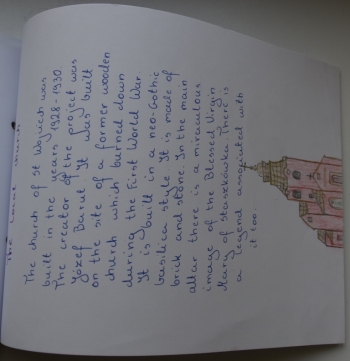 The church of st Wojciech was
built in the years 1928-1930
The creator of the project was
Józef Barut It was built
on the site of a former wooden
church which burned down
during the First World War.
It is built in a neo-Gothic
basilica style It is made of
brick and stone. In the main
altar there is a miraculous
image of the Blessed Virgin
Mary of There is
a legend associated with
it too